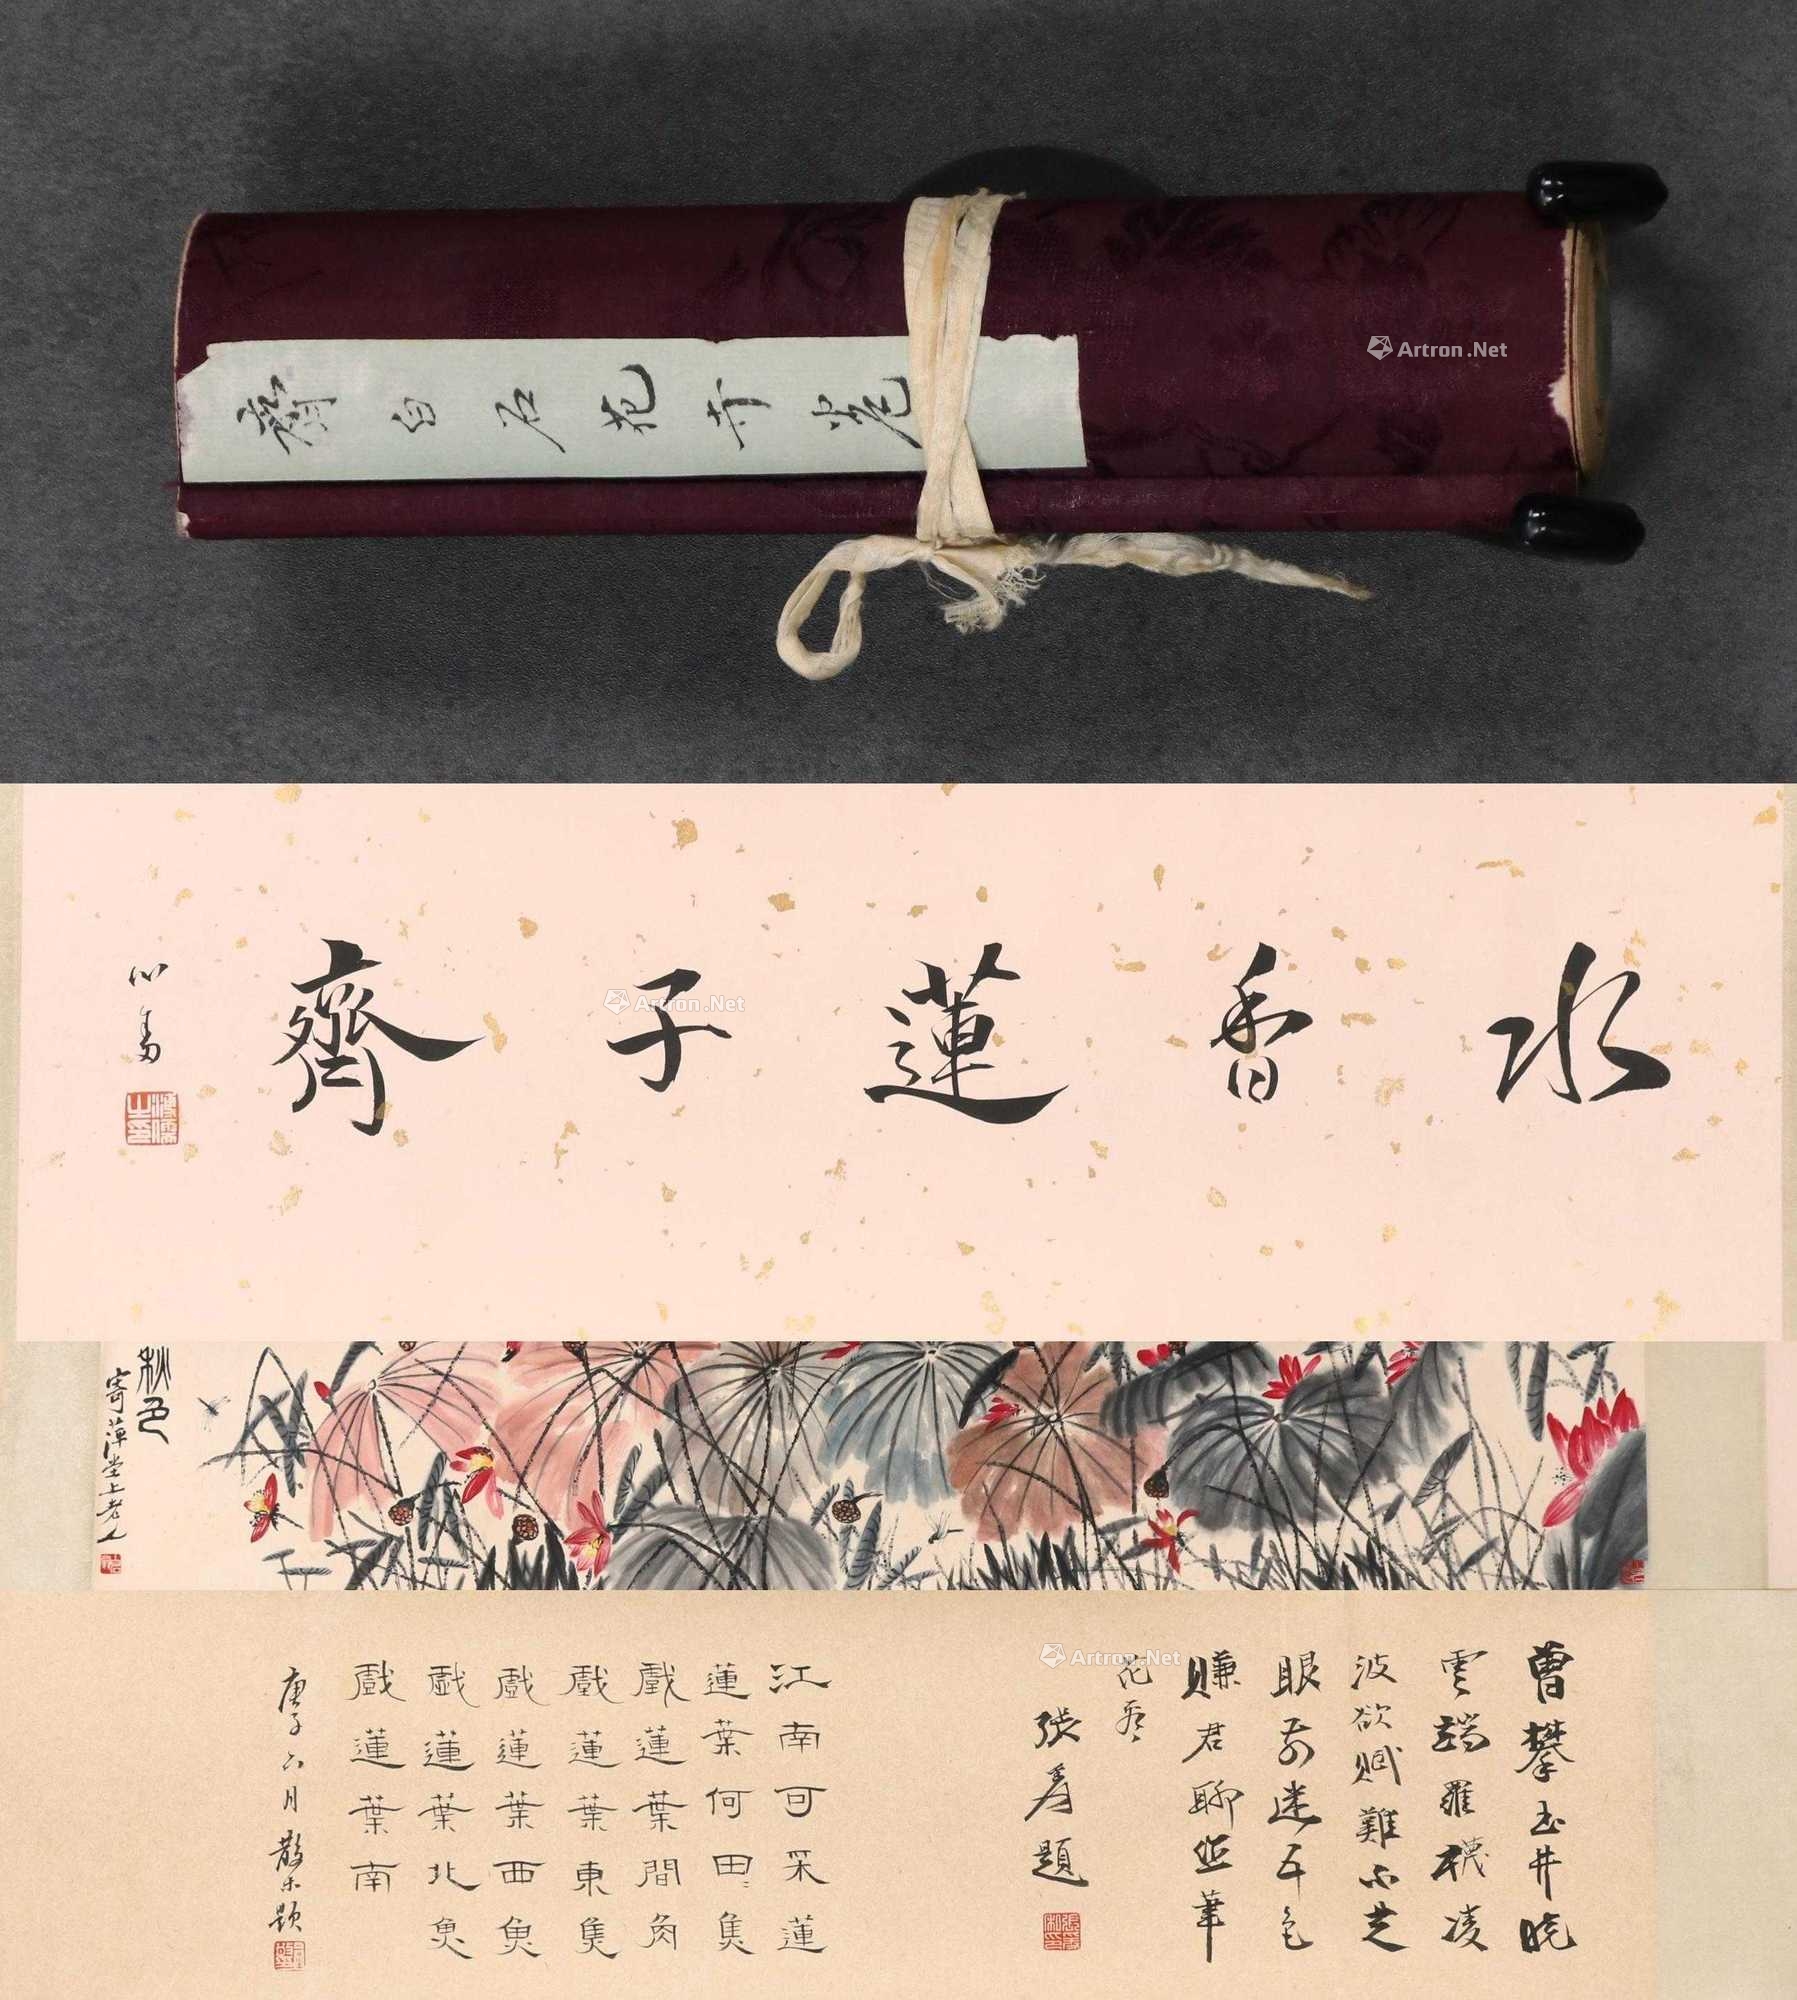 齊白石花卉卷
Artron.Net
水香蓮子齊
心畬
溥儒之印
Artron.Net
秋色
寄萍堂上老人
Artron.Net
曹攀玉井曉
雲端羅襪凌
波欲賦難小芝
眼前迷五色
賺君聊坐筆
花。
張爰題
江南可采蓮
蓮葉何田田魚
戲蓮葉間魚
戲蓮葉東魚
戲蓮葉西魚
戲蓮葉北魚
戲蓮葉南
庚子六月散木題